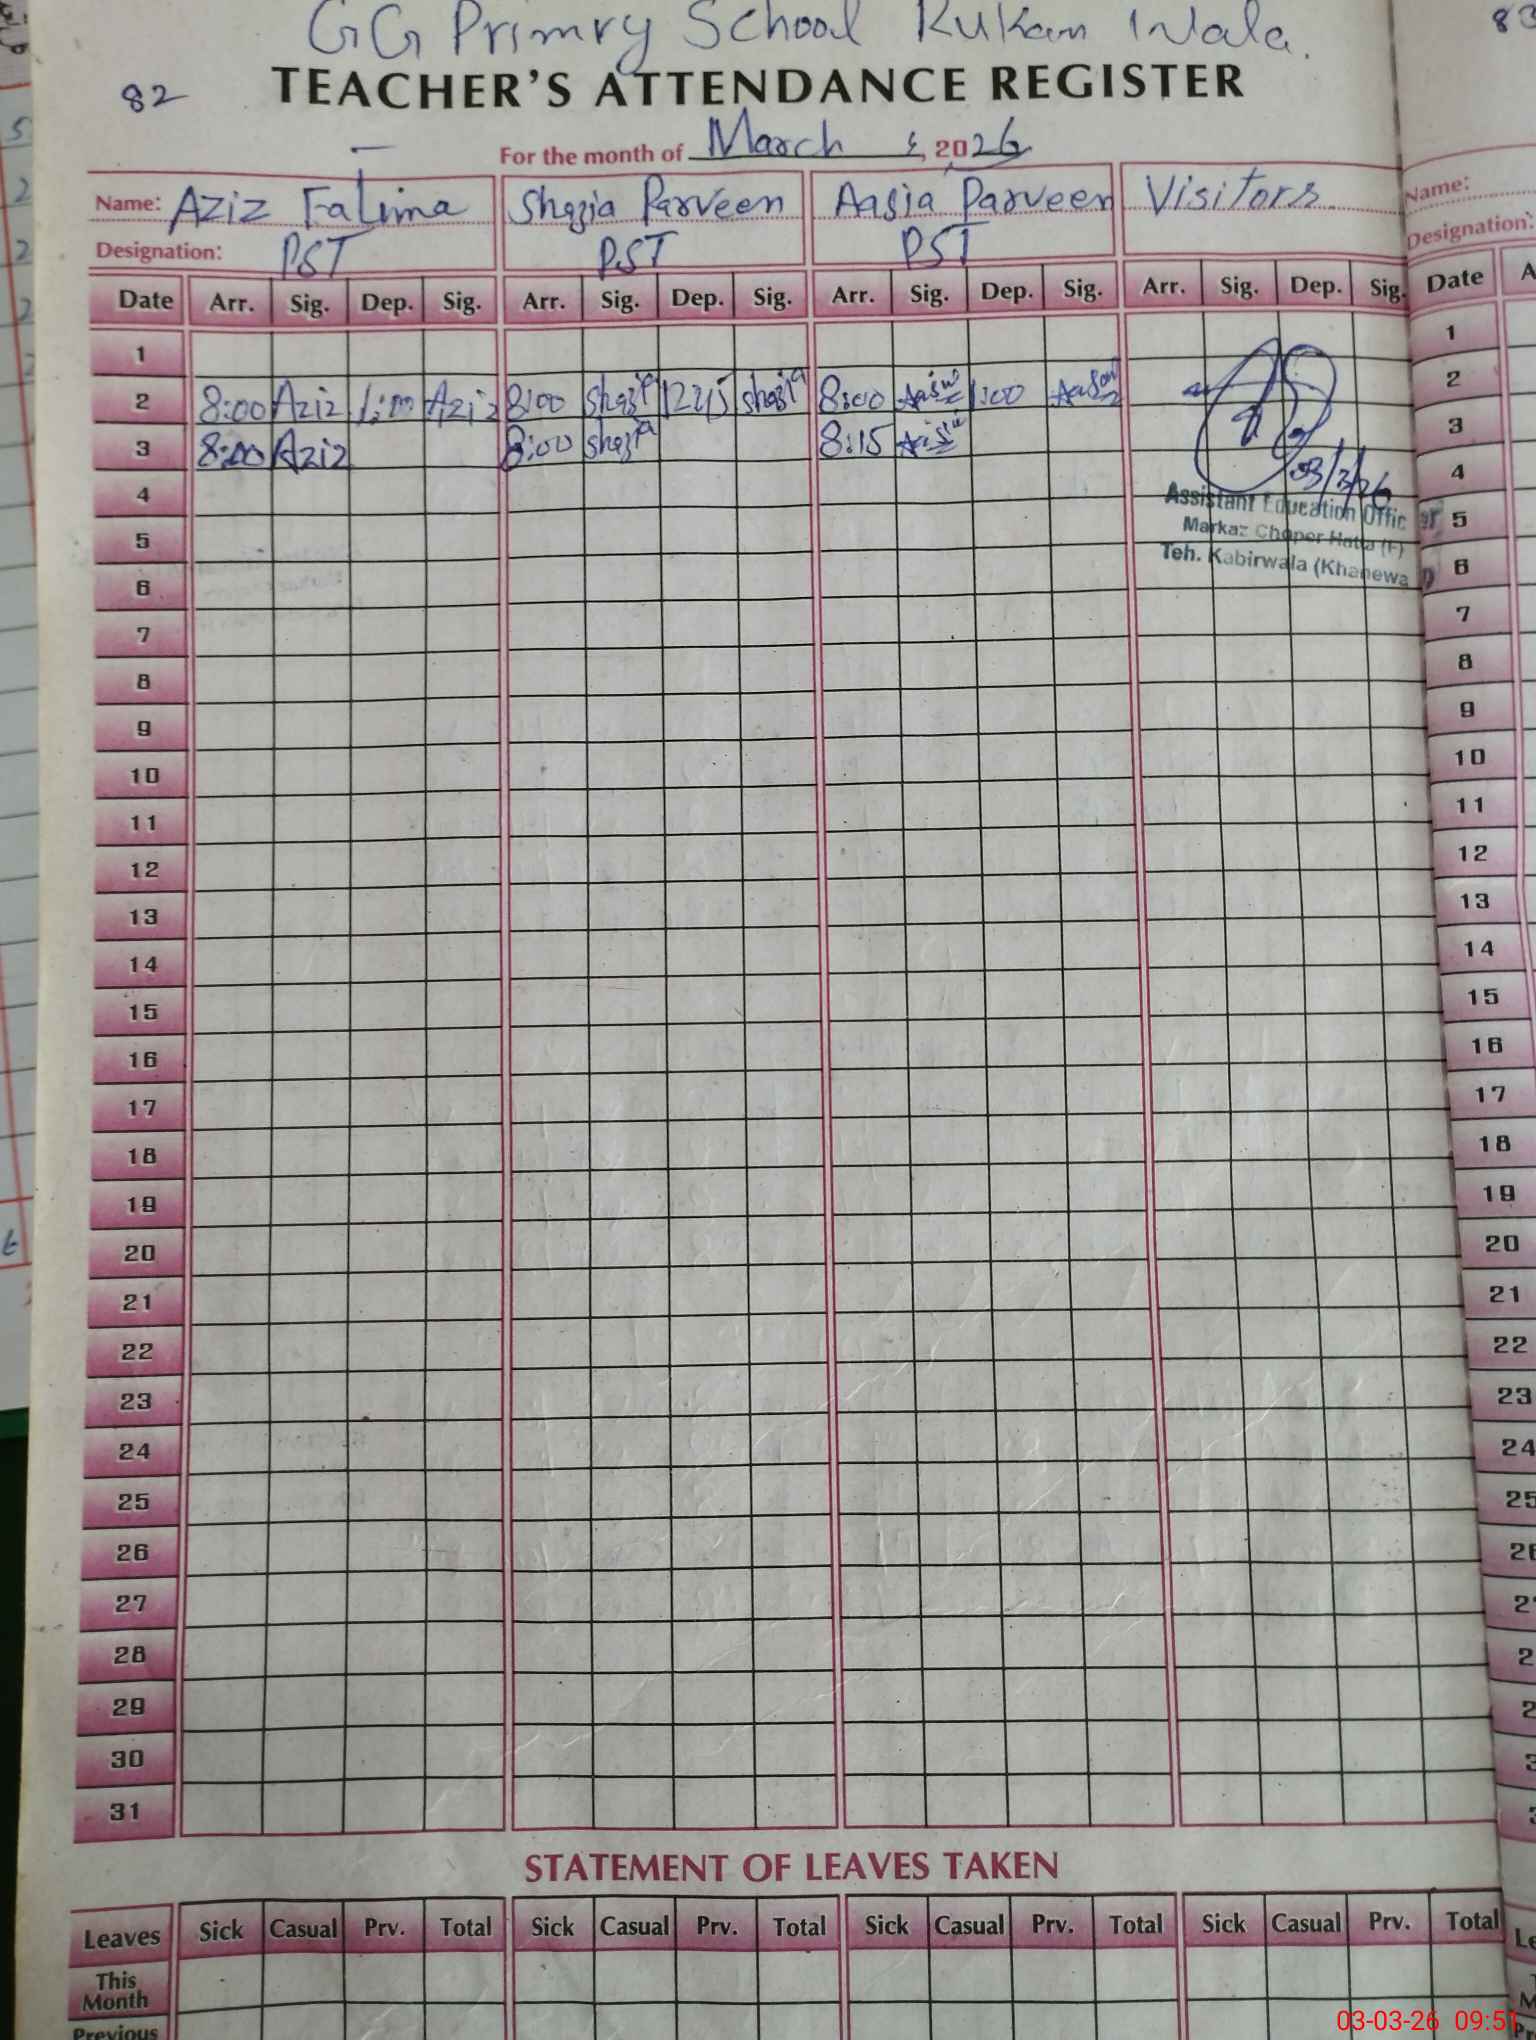 GG Primry School Rukan Wala.
82
83
TEACHER'S ATTENDANCE REGISTER
For the month of March, 2026
Name: Aziz Fatima Shazia Parveen Aasia Parveen Visitors
Designation: PST PST PST
Name:
Designation:
Date Arr. Sig. Dep. Sig. Arr. Sig. Dep. Sig. Arr. Sig. Dep. Sig. Arr. Sig. Dep. Sig. Date
1 1
2 8:00 Aziz 1:00 Aziz 8:00 Shazia 12:15 Shazia 8:00 1:00 2
3 8:00 Aziz 8:00 Shazia 8:15 3
03/3/26
4 4
Assistant Education Officer
5 5
Markaz (F)
Teh. Kabirwala (Khanewa
6 6
7 7
8 8
9 9
10 10
11 11
12 12
13 13
14 14
15 15
16 16
17 17
18 18
19 19
20 20
21 21
22 22
23 23
24 24
25 25
26
27
28
29
30
31
STATEMENT OF LEAVES TAKEN
Leaves Sick Casual Prv. Total Sick Casual Prv. Total Sick Casual Prv. Total Sick Casual Prv. Total
This
Month
Previous
03-03-26 09:51